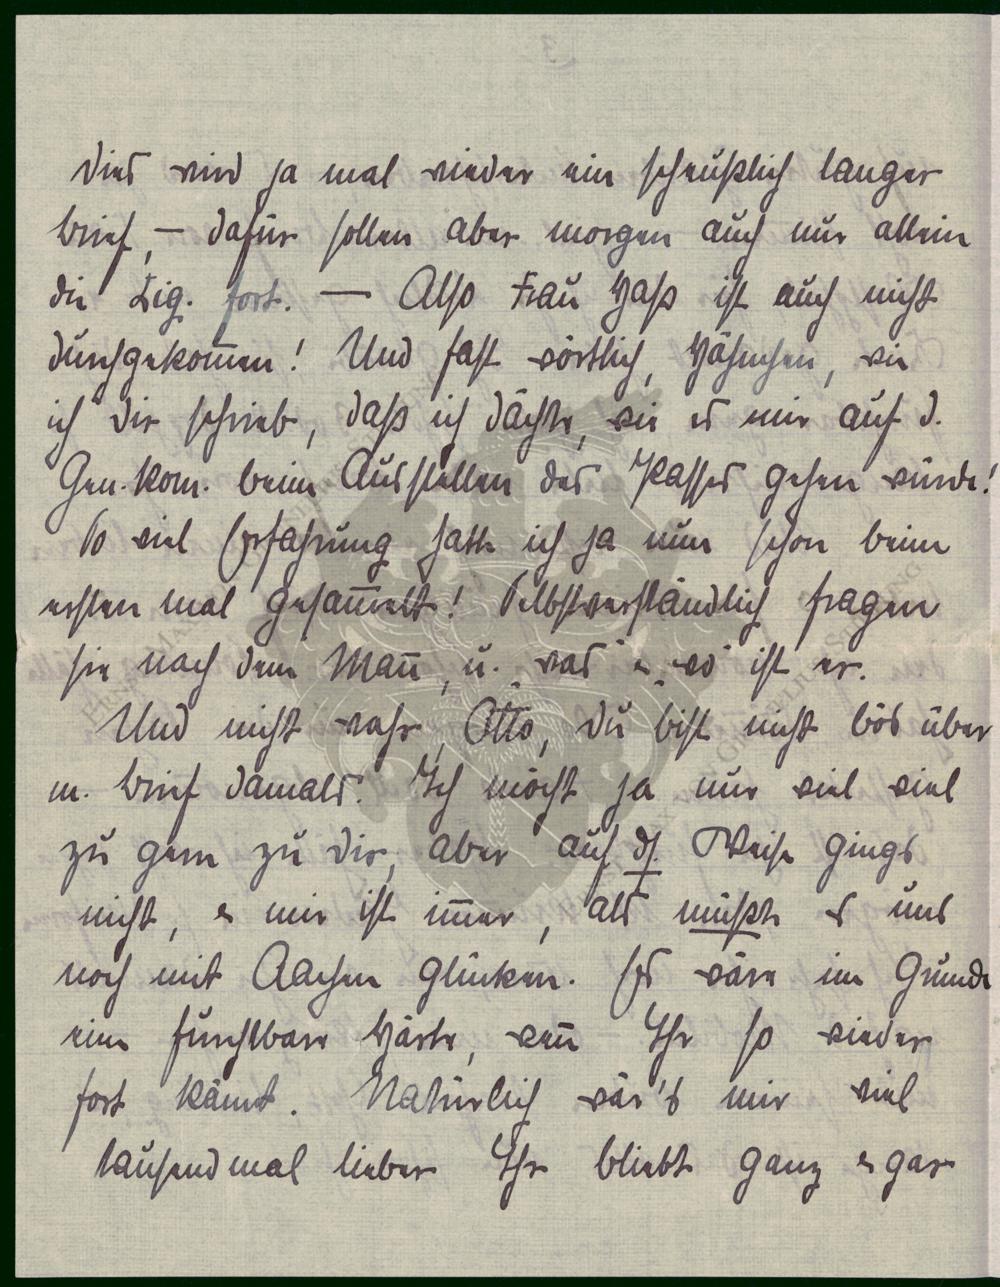 Dies wird ja mal wieder ein scheußlich langer
Brief, — dafür sollen aber morgen auch nur allein
die Zig. fort. — Also Frau Haß ist auch nicht
durchgekom̅en! Und fast wörtlich, Hähnchen, wie
ich Dir schrieb, daß ich dächte, wie es mir auf d.
Gen. Kom. beim Ausstellen des Passes gehen würde!
So viel Erfahrung hatte ich ja nun schon beim
ersten mal gesam̅elt! Selbstverständlich fragen
sie nach dem Man̅, u. „was" & „wo" ist er.
Und nicht wahr, Otto, Du bist nicht bös über
m. Brief damals? Ich möcht ja nur viel viel
zu gern zu Dir, aber auf ds. Weise gings
nicht, & mir ist im̅er, als müßte es uns
noch mit Aachen glücken. Es wäre im Grunde
eine furchtbare Härte, wen̅ Ihr so wieder
fort kämt. Natürlich wär's mir viel
tausendmal lieber Ihr bliebt ganz & gar